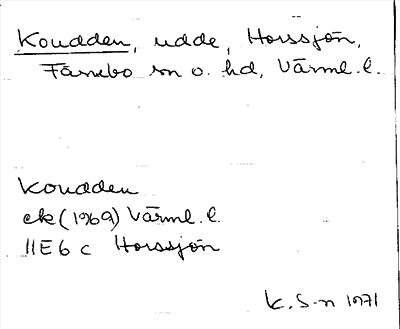 Koudden, udde, Horssjön,
Färnebo sn o. hd, Värml. l.
Koudden
ek (1969) Värml. l.
11E6c Horssjön
K. S-n 1971